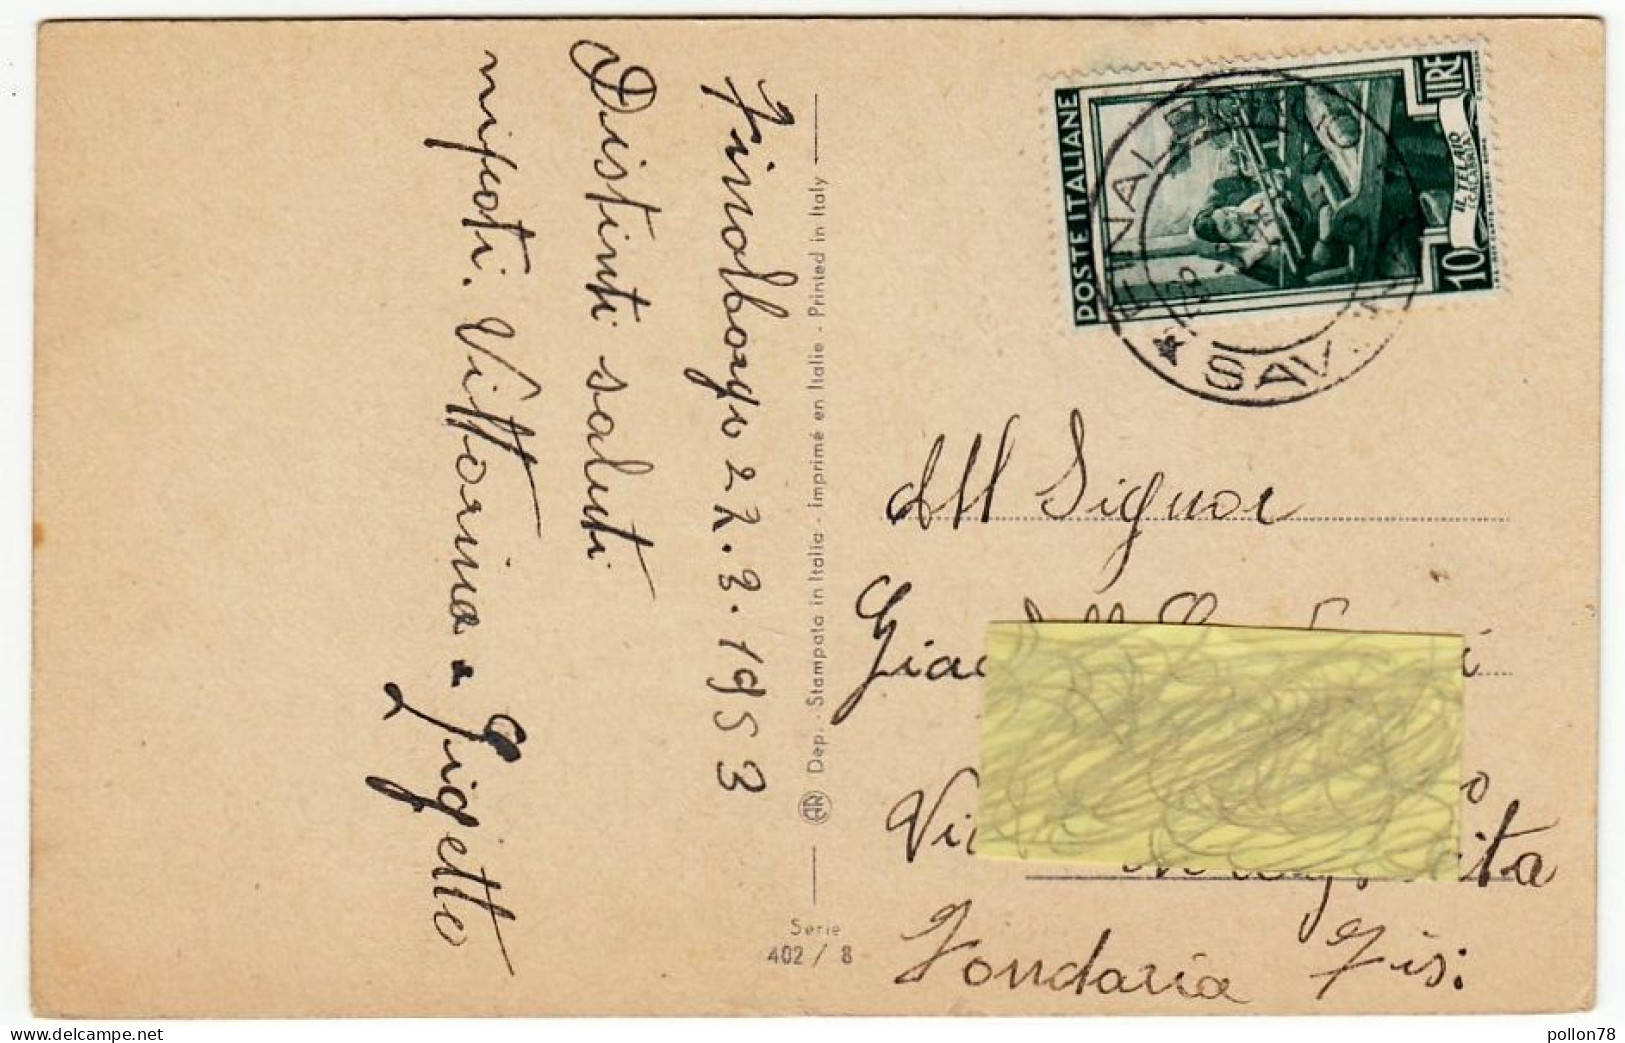 Finalborgo 22.3.1953
Distinti saluti
nipoti. Vittorina e Gigetto
Dep. - Stampata in Italia - Imprimé en Italie - Printed in Italy
AR
Serie
402 / 8
POSTE ITALIANE
10 LIRE
IL TELAIO
(CALABRIA)
FINAL
SAV
All Signor
Via
Fondaria Fis.
www.delcampe.net
pollon78